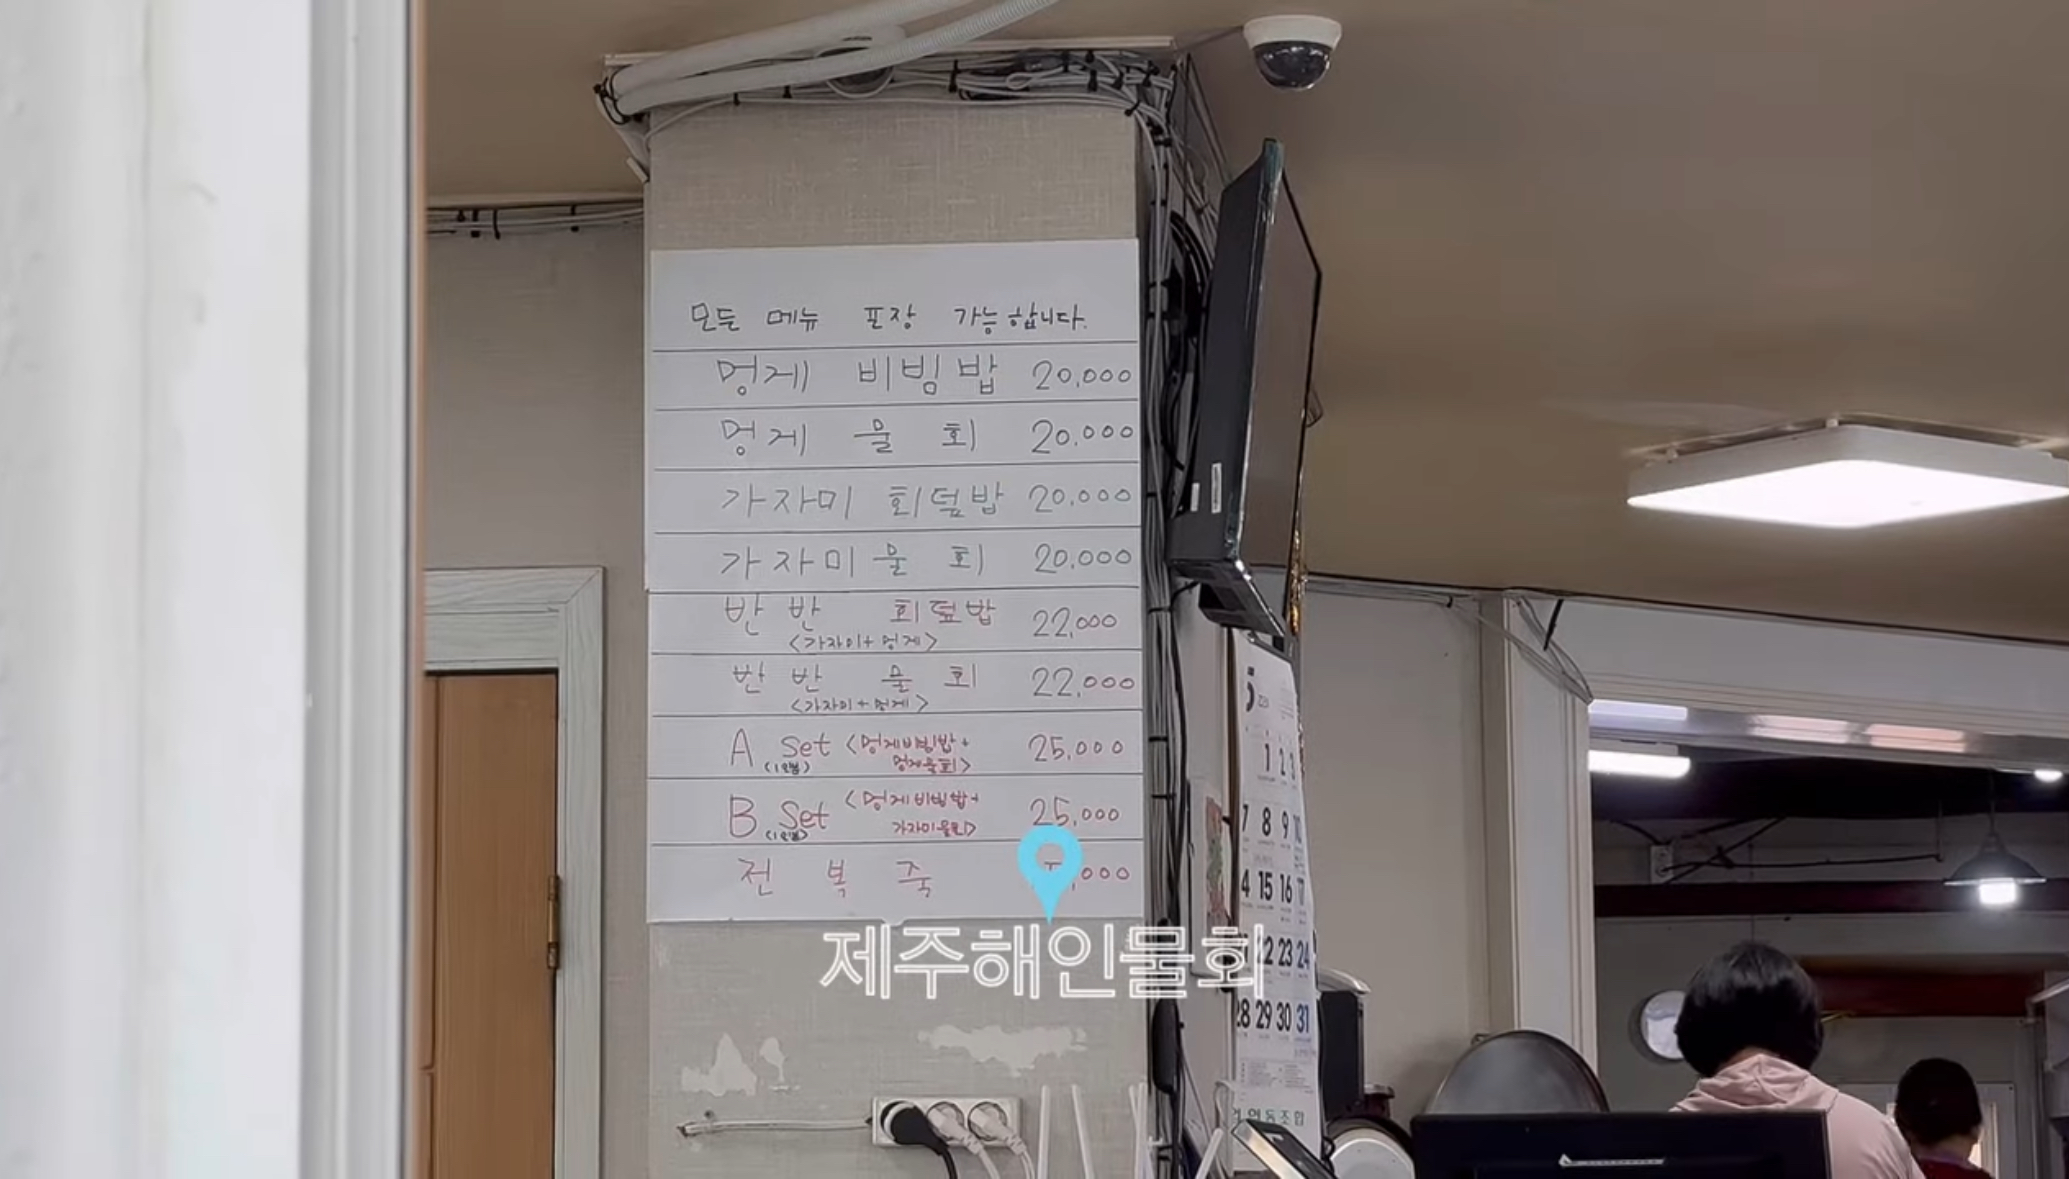 모든 메뉴 포장 가능합니다.
멍게 비빔밥 20,000
멍게 물회 20,000
가자미 회덮밥 20,000
가자미 물회 20,000
반반 회덮밥 22,000
<가자미+멍게>
반반 물회 22,000
<가자미+멍게>
A Set <멍게비빔밥+ 25,000
(1인분) 멍게물회>
B Set <멍게비빔밥+ 25,000
(1인분) 가자미물회>
전복죽 ,000
제주해인물회
5
1 2 3
7 8 9 10
4 15 16 17
22 23 24
28 29 30 31
협동조합